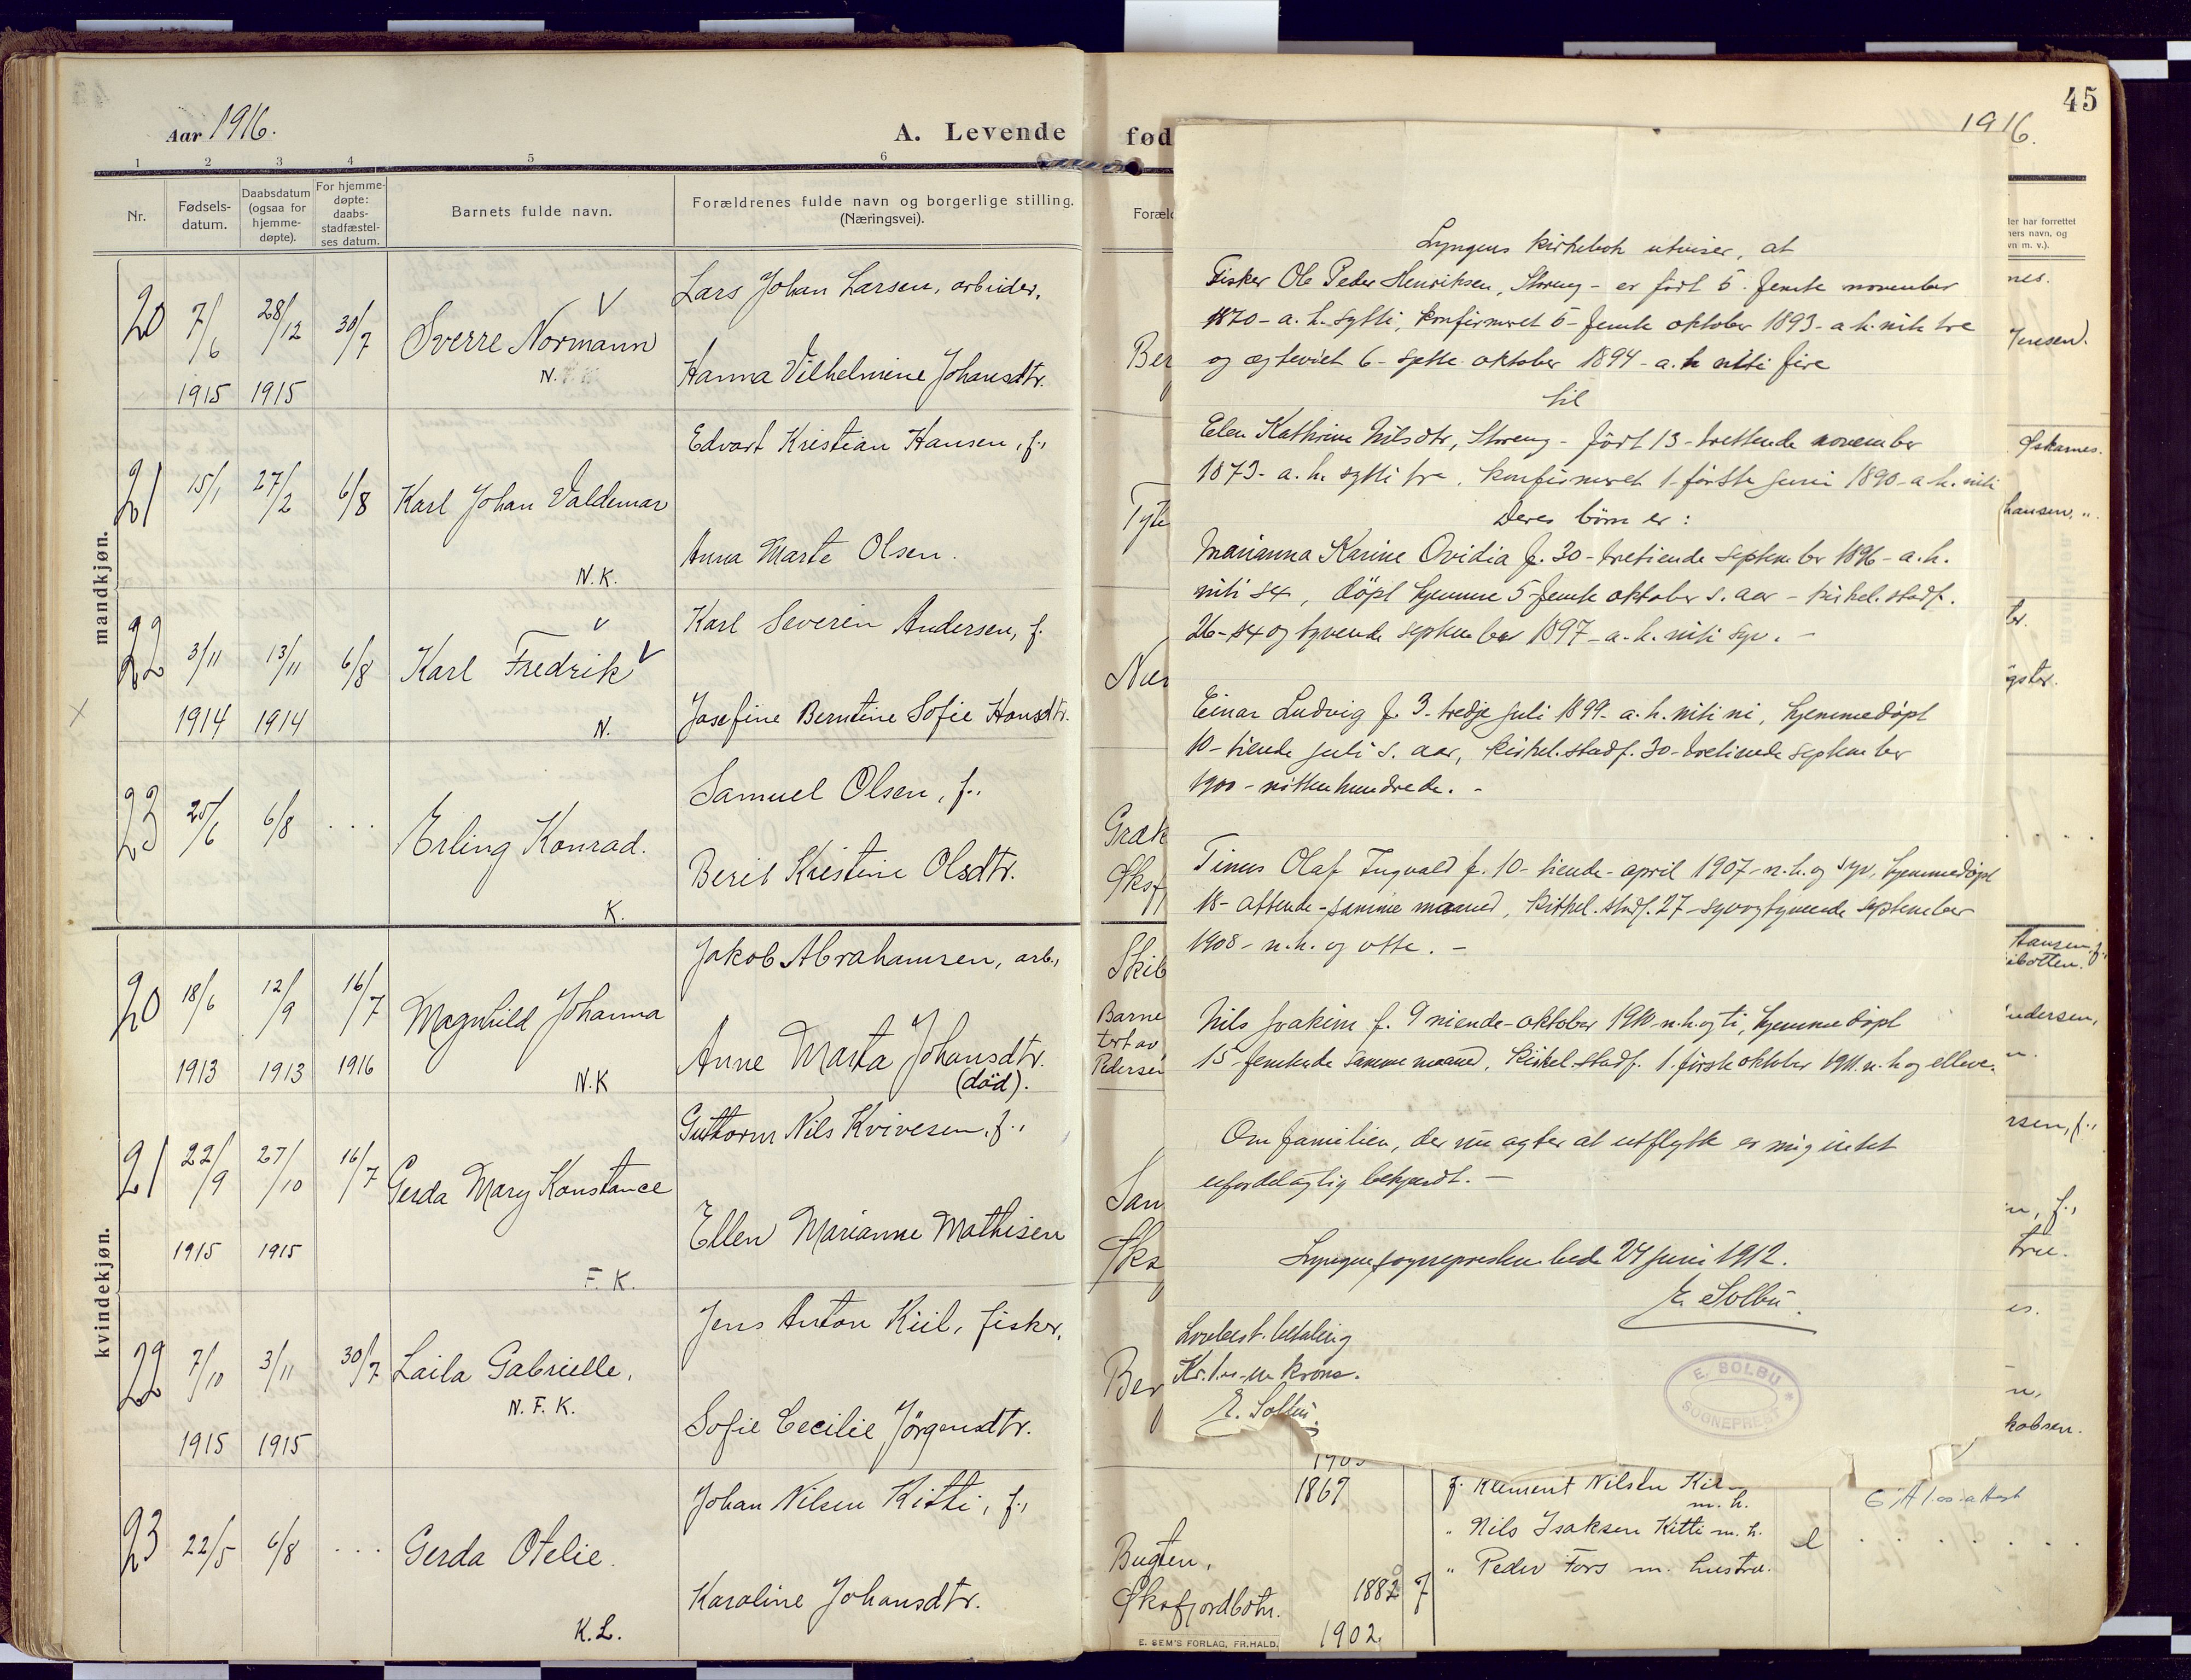 Aar 1916.
A. Levende
1 2 3 4 5 6
Nr.
Fødsels-
datum.
Daabsdatum
(ogsaa for
hjemme-
døpte).
For hjemme-
døpte:
daabs-
stadfæstel-
ses datum.
Barnets fulde navn.
Forældrenes fulde navn og borgerlige stilling.
(Næringsvei).
mandkjøn.
20 7/6 1915 28/12 1915 30/7 Sverre Normann
N.
Lars Johan Larsen, arbeider.
Hanna Vilhelmine Johansdtr.
21 15/1 27/2 6/8 Karl Johan Valdemar
N.K.
Edvart Kristian Hansen, f.,
Anna Marte Olsen.
22 3/11 1914 13/11 1914 6/8 Karl Fredrik
N.
Karl Severin Andersen, f.
Josefine Berntine Sofie Hansdtr.
23 25/6 6/8 ... Erling Konrad.
K.
Samuel Olsen, f.,
Berit Kristine Olsdtr.
kvindekjøn.
20 18/6 1913 12/9 1913 16/7 1916 Magnhild Johanna
N.K
Jakob Abrahamsen, arb.,
Anne Marta Johansdtr.
(död).
21 22/9 1915 27/10 1915 16/7 Gerda Mary Konstance
F. K.
Guttorm Nils Kvivesen, f.,
Ellen Marianne Mathisen
22 7/10 1915 3/11 1915 30/7 Laila Gabrielle,
N. F. K.
Jens Anton Kiil, fisker,
Sofie Cecilie Jörgensdtr.
23 22/5 6/8 ... Gerda Otelie.
K.L.
Johan Nilsen Kitti, f.,
Karoline Johansdtr.
fød
45
1916.
Foræld
Ber
Tyte
Nær
Græk
Øksf
Skib
Barne
Pedersen
San
Øks
Ber
Lyngens kirkebok utviser, at
Fisker Ole Peder Henriksen, Storeng - er født 5. femte november
1870 - a. h. sytti, konfirmeret 5 - femte oktober 1893 - a. h. niti tre
og egteviet 6 - sjette oktober 1894 - a. h. niti fire
til
Elen Kathrine Nilsdtr, Storeng - født 13 - trettende november
1873 - a. h. sytti tre, konfirmeret 1 - første juni 1890 - a. h. niti
Deres børn er:
Marianna Karine Ovidia f. 30 - tretiende september 1896 - a. h.
niti sex, döpt hjemme 5 femte oktober s. aar - kirkel. stadf.
26 - sex og tyvende september 1897 - a. h. niti syv. -
Einar Ludvig f. 3. tredje juli 1899 - a. h. niti ni, hjemmedöpt
10 - tiende juli s. aar, kirkel. stadf. 30 - tretiende september
1900 - nittenhundrede. -
Tinus Olaf Ingvald f. 10 - tiende - april 1907 - n. h. og syv, hjemmedöpt
18 - attende - samme maaned, kirkel. stadf. 27 - syvogtyvende september
1908 - n. h. og otte. -
Nils Joakim f. 9 niende - oktober 1910 - n. h. og ti, hjemmedöpt
15 femtende samme maaned, kirkel. stadf. 1. første oktober 1911. n. h og elleve.
Om familien, der nu agter at utflytte er mig intet
ufordelagtig bekjendt. -
Lyngen sogneprestembede 24 juni 1912.
E. Solbu.
Lovbest. betaling
Kr. 1.00 - en krone.
E. Solbu.
E. SOLBU
SOGNEPREST
der har forrettet
ners navn, og
vn m. v.).
nes.
Jensen).
Øskarnes.
hansen, ".
gster.
Hansen, f.,
ibotten.
Andersen,
rsen, f.,
n, f.,
true.
es.
kobsen.
1869
f. Klemet Nilsen Kil-
m. h.
" Nils Isaksen Kitti m. h.
" Peder Fors m. hustru.
Bugten,
Øksfjordbotn.
1882
1902.
E. SEM'S FORLAG, FR.HALD.